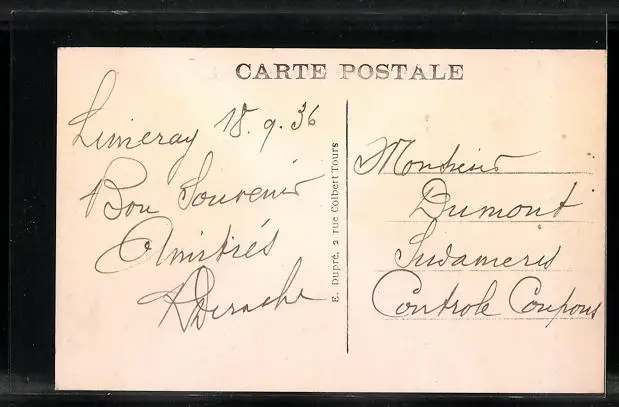 CARTE POSTALE
Limeray 18.9.36
Bon Souvenir
Amitiés
E. Dupré, 2 rue Colbert Tours
Monsieur
Dumont
Sudameris
Controle Coupons